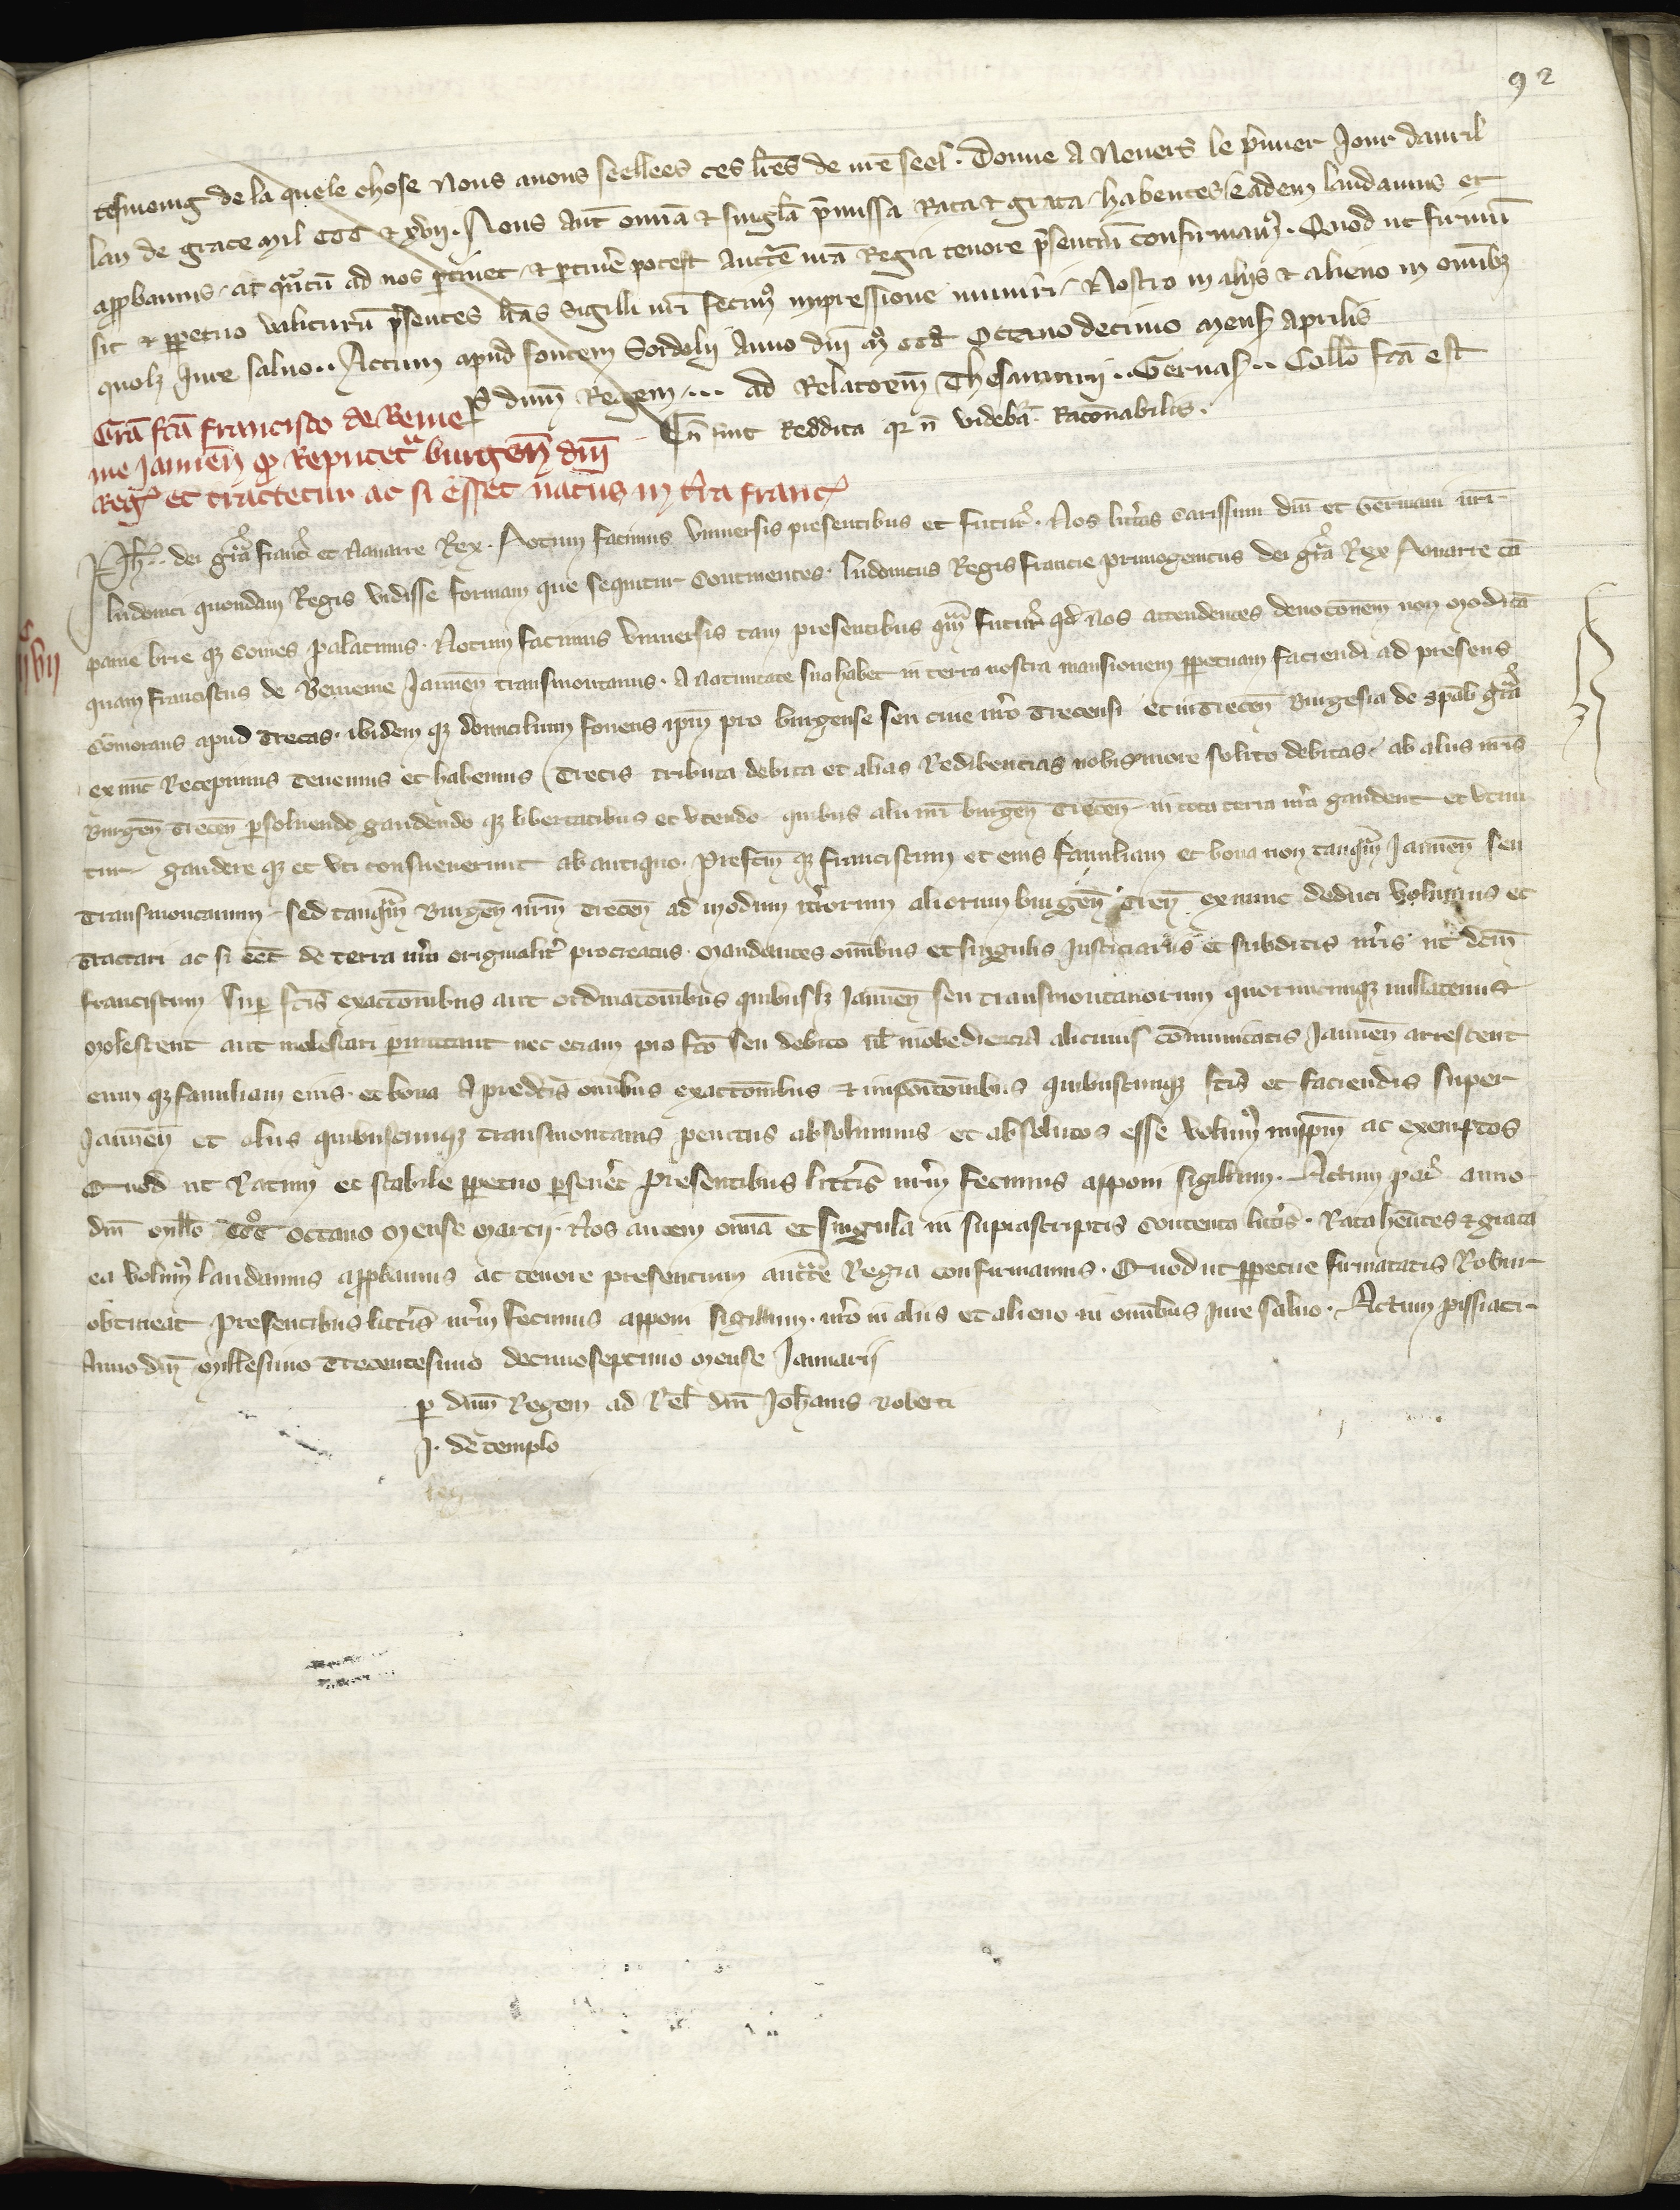 92
tesmoing de la quele chose nous auons seellees ces lr̄es de nr̄e seel. Donne a Neuers le p̄mier Jour dauril
lan de grace mil ccc & xvii. Nos aut̄ om̄ia & sinḡla p̄missa Rata & grata habentes eadem laudamus et
app̱bamus at qᵃntū ad nos p̱tinet & p̱tinē potest auctē nr̄a Regia tenore p̄sentiū confirmamꝰ. Quod ut firmū
sit & p̱petuo valiturū p̄sentes lr̄as Sigilli nr̄i fecimꝰ impressione muniri. Nostro in alijs & alieno in om̄ibꝫ
quolꝫ Jure saluo.. Actum apud fontem Sordolij Anno dn̄i mº ccc Octauo decimo mens̄ Aprilis
P̱ dn̄m Regem... ad Relacōem Thesaurarij.. Geruas̄.. Coll̄o fc̄a est
Tn̄ sunt Reddita qꝛ n̄ videbāt Racōnabiles.
Grā fc̄a francisco de Beme
me Januen̄ qᵈ Reputetᵘʳ burgen̄ dn̄i
Regꝭ et tractetur ac si esset natus in tr̄ra franc̄
vii
Ph̄.. dei grā franc̄ et Nauarre Rex. Notum facimus vniuersis presentibus et futur̄. Nos litteras carissimi dn̄i et Germani nr̄i
ludouici quondam Regis vidisse formam que sequitur continentes. ludouicus Regis francie primogenitus dei grā Rex Nauarre cā
panie brie qꝫ comes palatinus. Notum facimus vniuersis tam presentibus qᵃm futur̄ qᵈ nos attendentes deuotōnem non modicā
quam franciscus de Bememe Januen̄ transmontanus. A natiuitate sua habet in terra nostra mansionem p̱petuam faciendi ad presens
com̄orans apud trecas. ibidem qꝫ domicilium fouens ip̄m pro burgense seu ciue nr̄o trecensi et in trecen̄ Burgesia de sp̄ali grā
ex nūc Recepimus tenemus et habemus trecis tributa debita et alias Redibencias nobis more solito debitas ab aliis nr̄is
Burgen̄ trecen̄ p̱soluendo gaudendo qꝫ libertatibus et vtendo quibus alii nr̄i burgen̄ trecen̄ in tota terra nr̄a gaudent et vtun
tur gaudere qꝫ et vti consueuerunt ab antiquo. Prefatū qꝫ franciscum et eius familiam et bona non tanqᵃm Januen̄ seu
transmontanum sed tanqᵃm Burgen̄ nr̄m trecen̄ ad modum nr̄orum aliorum burgen̄ trecen̄ ex nunc deduci volumus et
tractari ac si eēt de terra nr̄a originalit̄ procreatus. Mandantes om̄ibus et singulis Justiciariis et subditis nr̄is ut dc̄m
franciscum sup̱ fc̄is exactōnibus aut ordinatōnibus quibuslꝫ Januen̄ seu transmontanorum quorumcunqꝫ nullatenus
molestent aut molestari p̱mittant nec etiam pro fc̄o seu debito ul̄ inobediencia alicuius com̄unitatis Januen̄ arrestent
eum qꝫ familiam eius et bona A predc̄is om̄ibus exactōnibus & impoicōnibus quibuscunqꝫ fc̄is et faciendis super
Januen̄ et aliis quibuscunqꝫ transmontanis penitus absoluimus et absolutos esse volumꝰ imp̱p̱m ac exemptos
Quod ut Ratum et stabile p̱petuo p̱seuer̄et presentibus litt̄is nr̄m fecimus apponi sigillum. Actum par̄ anno
dn̄i mill̄o cccº octauo mense marcij. Nos autem om̄ia et singula in suprascriptis contenta litt̄is. Rata hēntes & grata
ea volumꝰ laudamus app̱bamus ac tenore presentium auctᵗᵉ Regia confirmamus. Quod ut p̱petue firmitatis Robur
obtineat presentibus litt̄is nr̄m fecimus apponi sigillum. nr̄o in aliis et alieno in om̄ibus Jure saluo. Actum pissiaci
Anno dn̄i millesimo trecentesimo decimoseptimo mense Januarij
p̱ dn̄m Regem ad Rel̄ dn̄i Joh̄anis Roberti
J. de templo